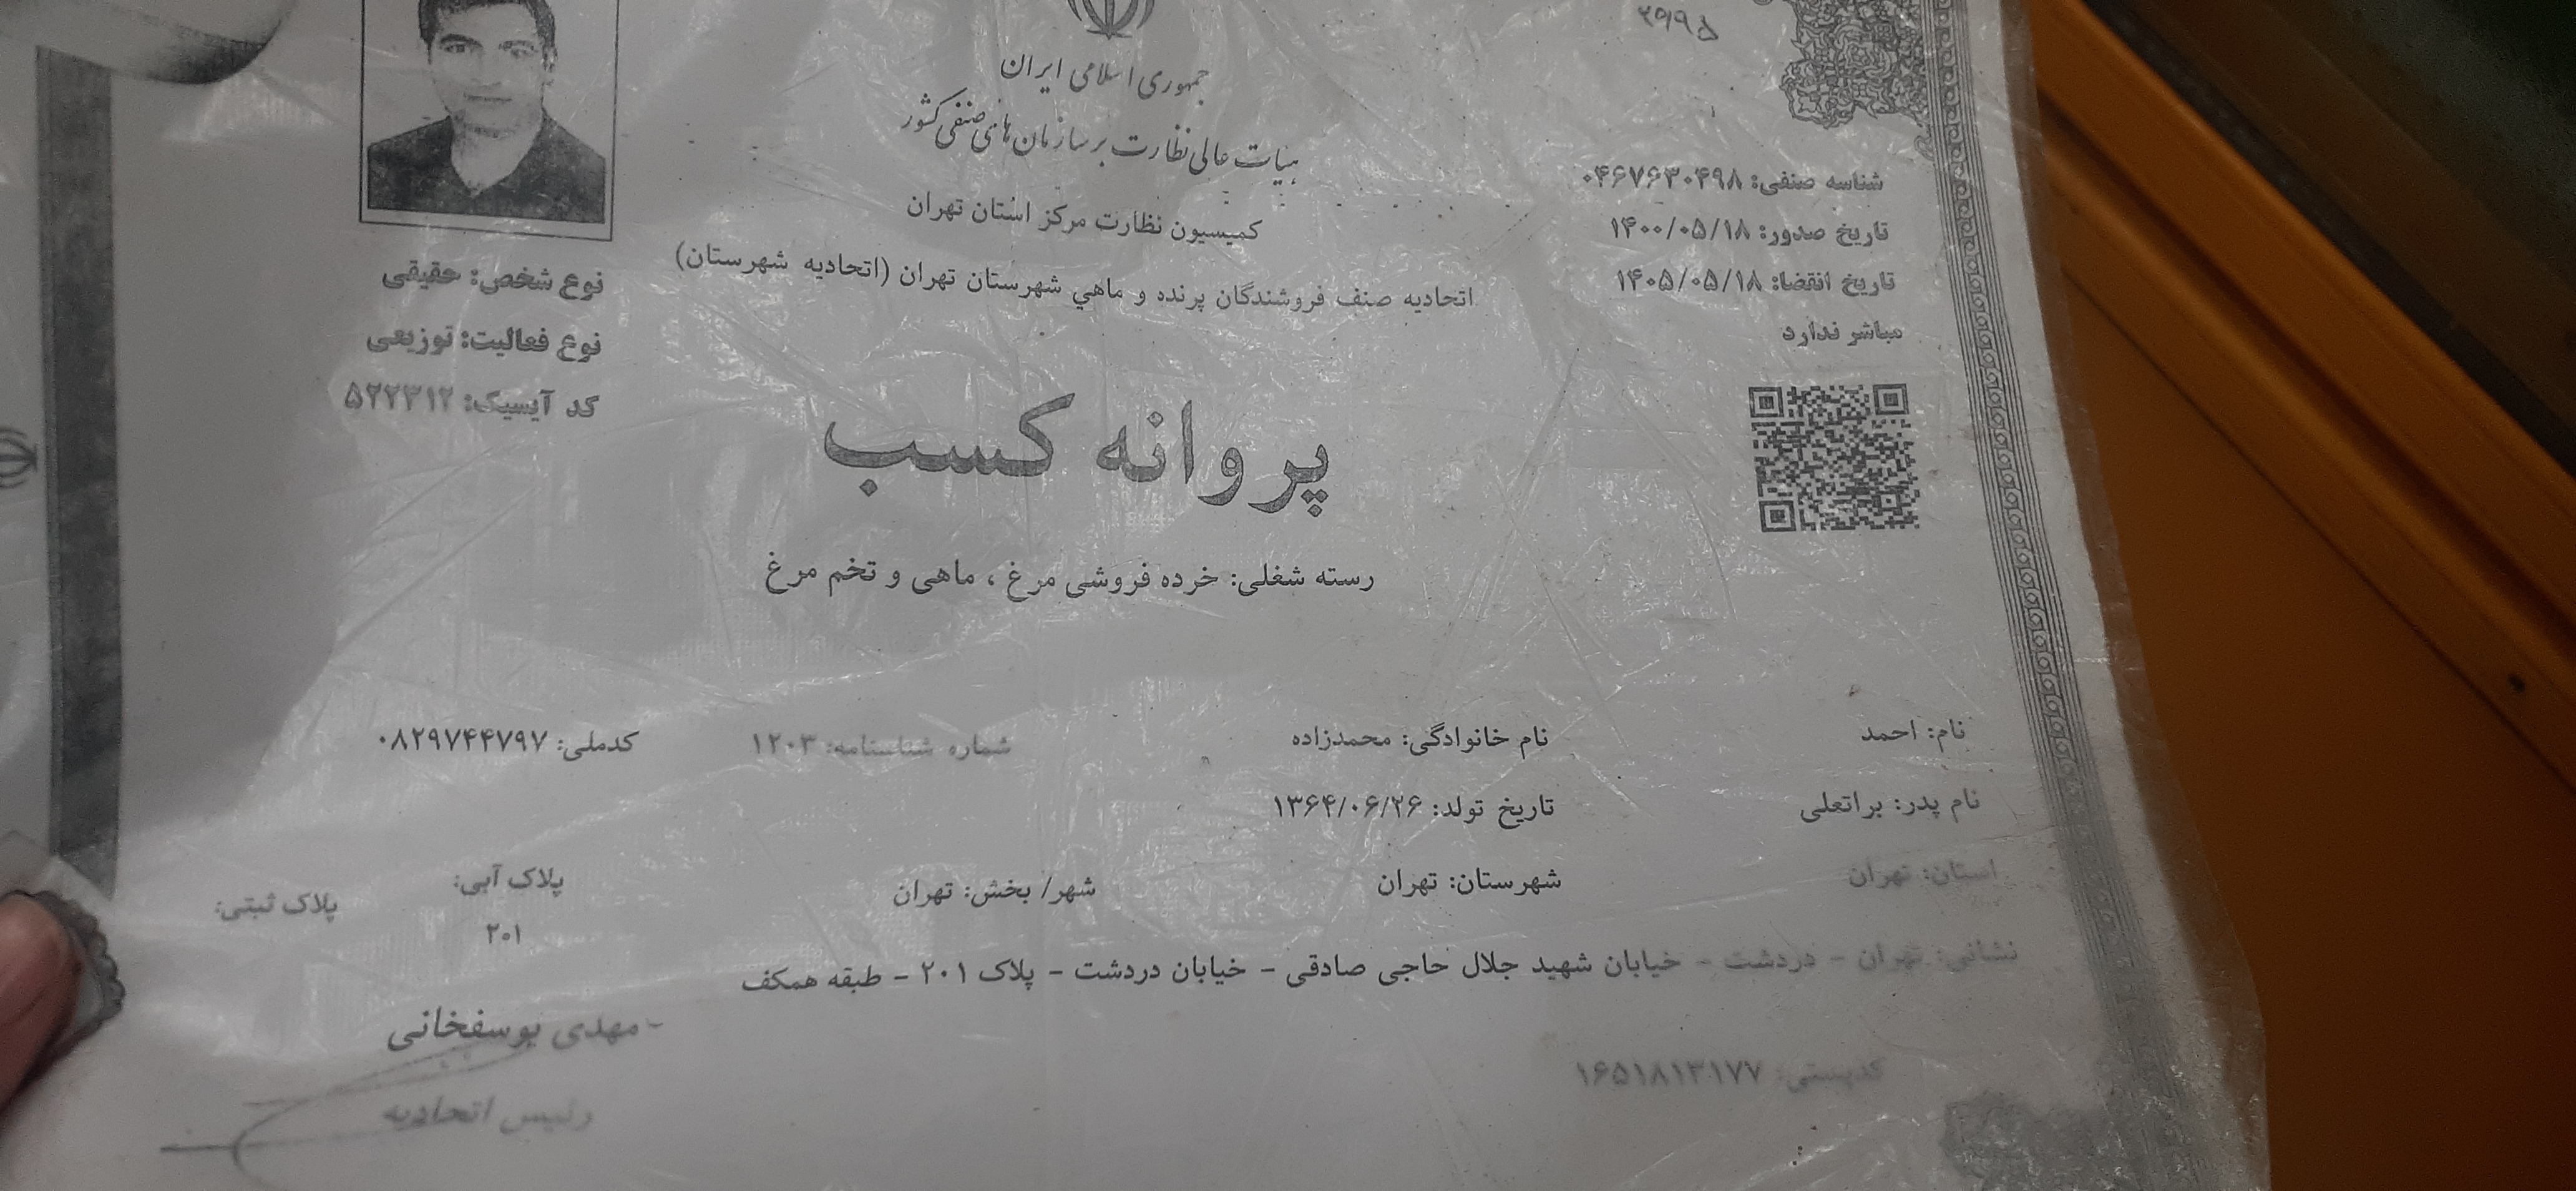 ۲۹۹۵
جمهوری اسلامی ایران
هیات عالی نظارت بر سازمان های صنفی کشور
کمیسیون نظارت مرکز استان تهران
اتحادیه صنف فروشندگان پرنده و ماهي شهرستان تهران (اتحادیه شهرستان)
شناسه صنفی: ۰۴۶۷۶۳۰۴۹۸
تاریخ صدور: ۱۴۰۰/۰۵/۱۸
تاریخ انقضا: ۱۴۰۵/۰۵/۱۸
مباشر ندارد
نوع شخص: حقیقی
نوع فعالیت: توزیعی
کد آیسیک: ۵۲۲۳۱۲
پروانه کسب
رسته شغلی: خرده فروشی مرغ ، ماهی و تخم مرغ
نام: احمد نام خانوادگی: محمدزاده شماره شناسنامه: ۱۲۰۳ کدملی: ۰۸۲۹۷۴۴۷۹۷
نام پدر: براتعلی تاریخ تولد: ۱۳۶۴/۰۶/۲۶
استان: تهران شهرستان: تهران شهر/ بخش: تهران پلاک آبی: پلاک ثبتی:
۲۰۱
نشانی: تهران - دردشت - خیابان شهید جلال حاجی صادقی - خیابان دردشت - پلاک ۲۰۱ - طبقه همکف
مهدی یوسفخانی
کدپستی: ۱۶۵۱۸۱۳۱۷۷
رئیس اتحادیه